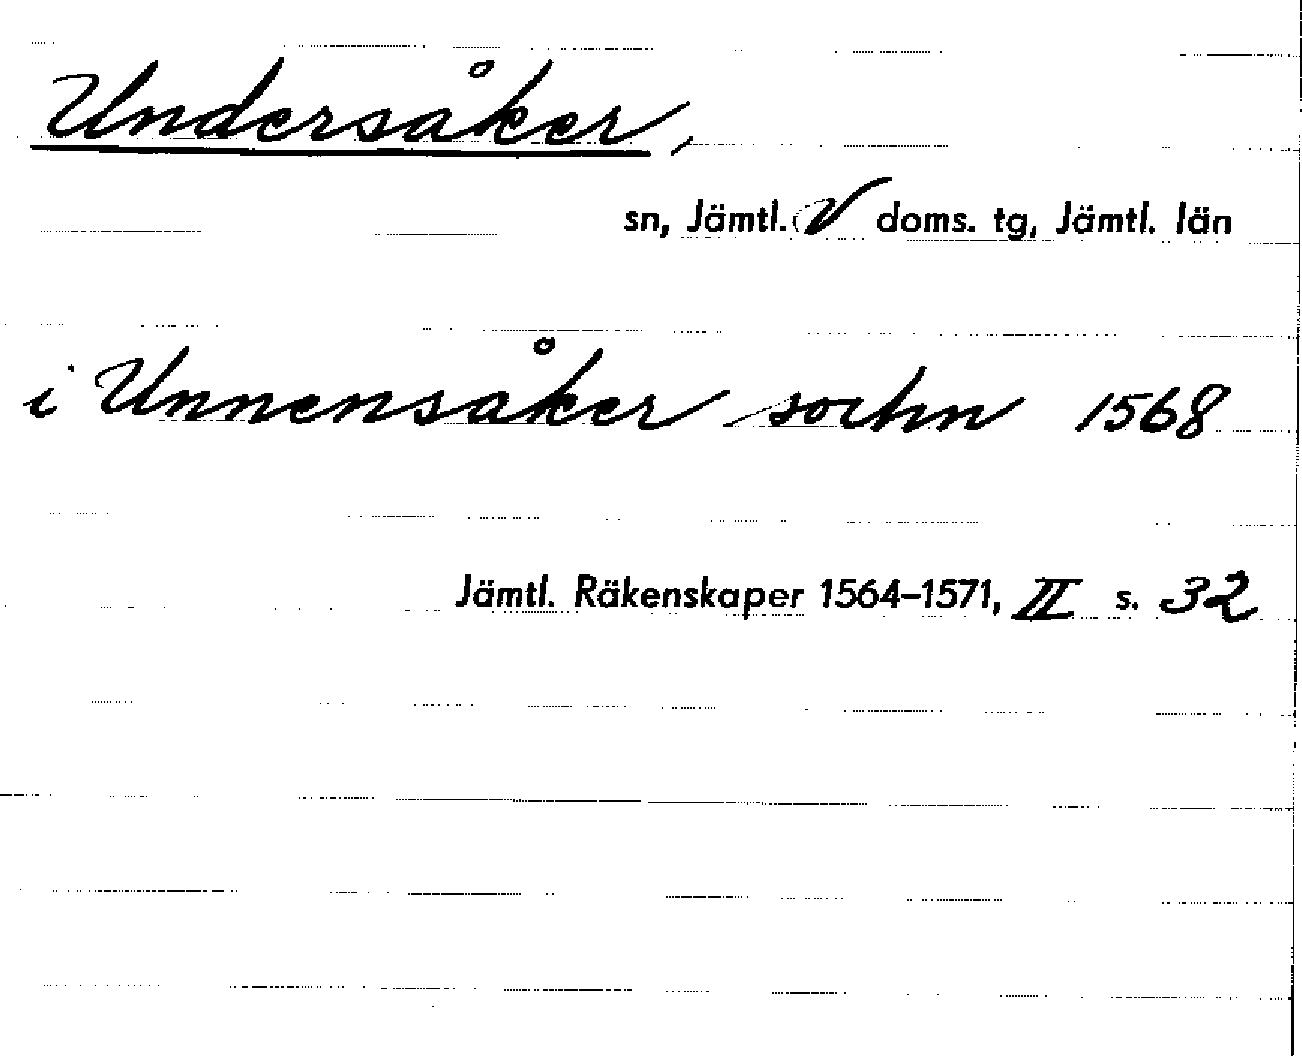 Undersåker,
sn, Jämtl. V doms. tg, Jämtl. län
i Unnensåker sochn 1568
Jämtl. Räkenskaper 1564–1571, II s. 32